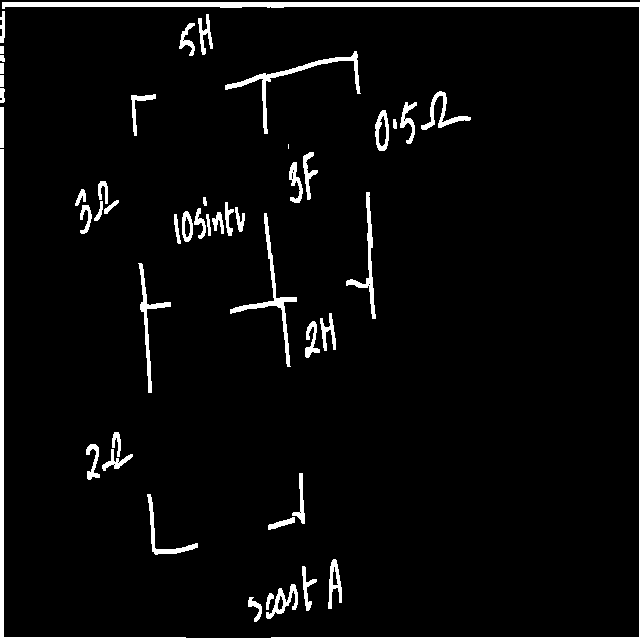 5H
0.5Ω
3Ω
3F
10sintv
2H
2Ω
5cost A